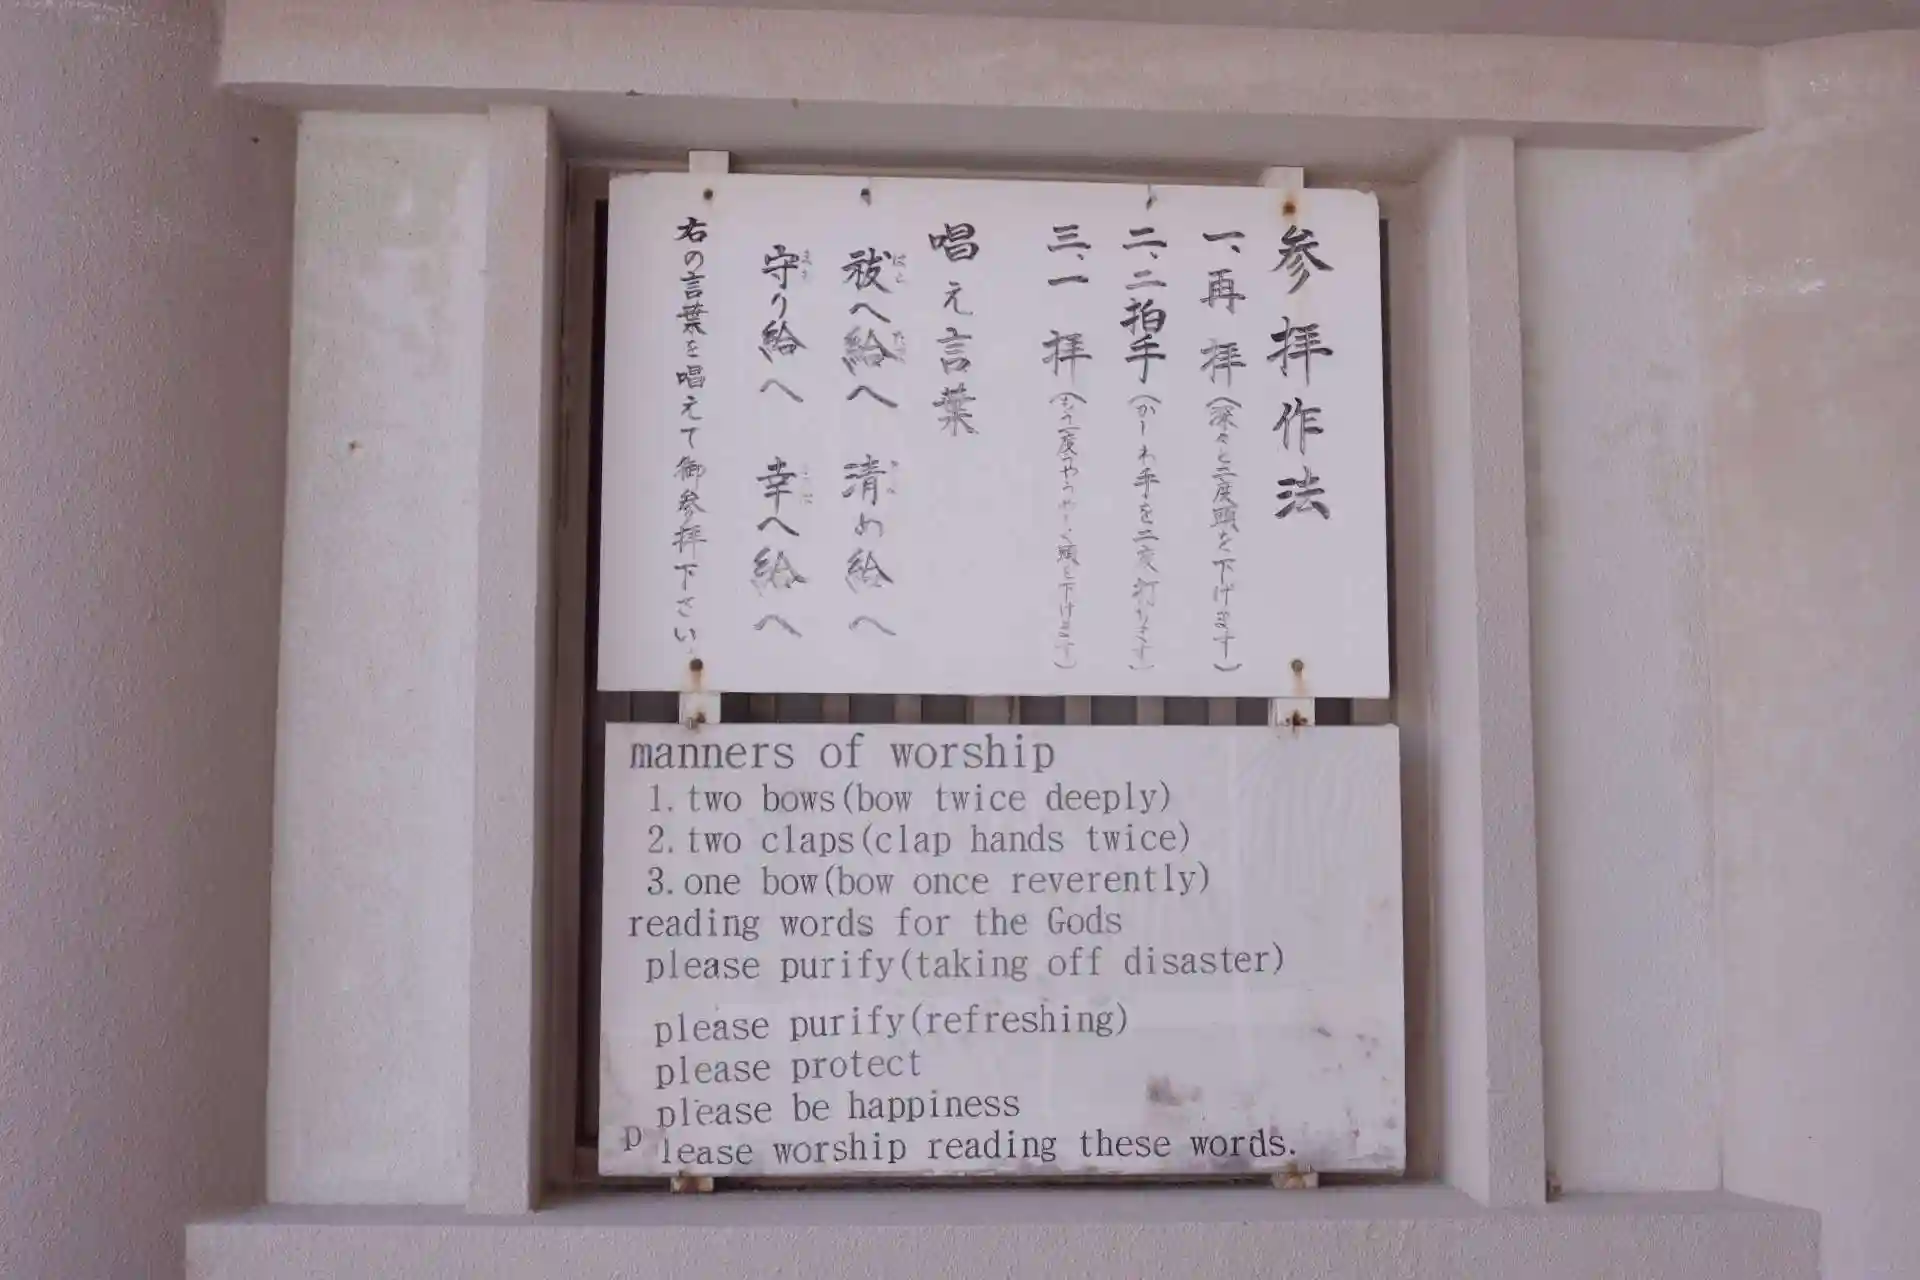 参拝作法
一、再拝（深々と二度頭を下げます）
二、二拍手（かしわ手を二度打ちます）
三、一拝（もう一度うやうやしく頭を下げます）
唱え言葉
祓へ給へ 清め給へ
守り給へ 幸へ給へ
右の言葉を唱えて御参拝下さい。
manners of worship
1.two bows(bow twice deeply)
2.two claps(clap hands twice)
3.one bow(bow once reverently)
reading words for the Gods
please purify(taking off disaster)
please purify(refreshing)
please protect
please be happiness
please worship reading these words.